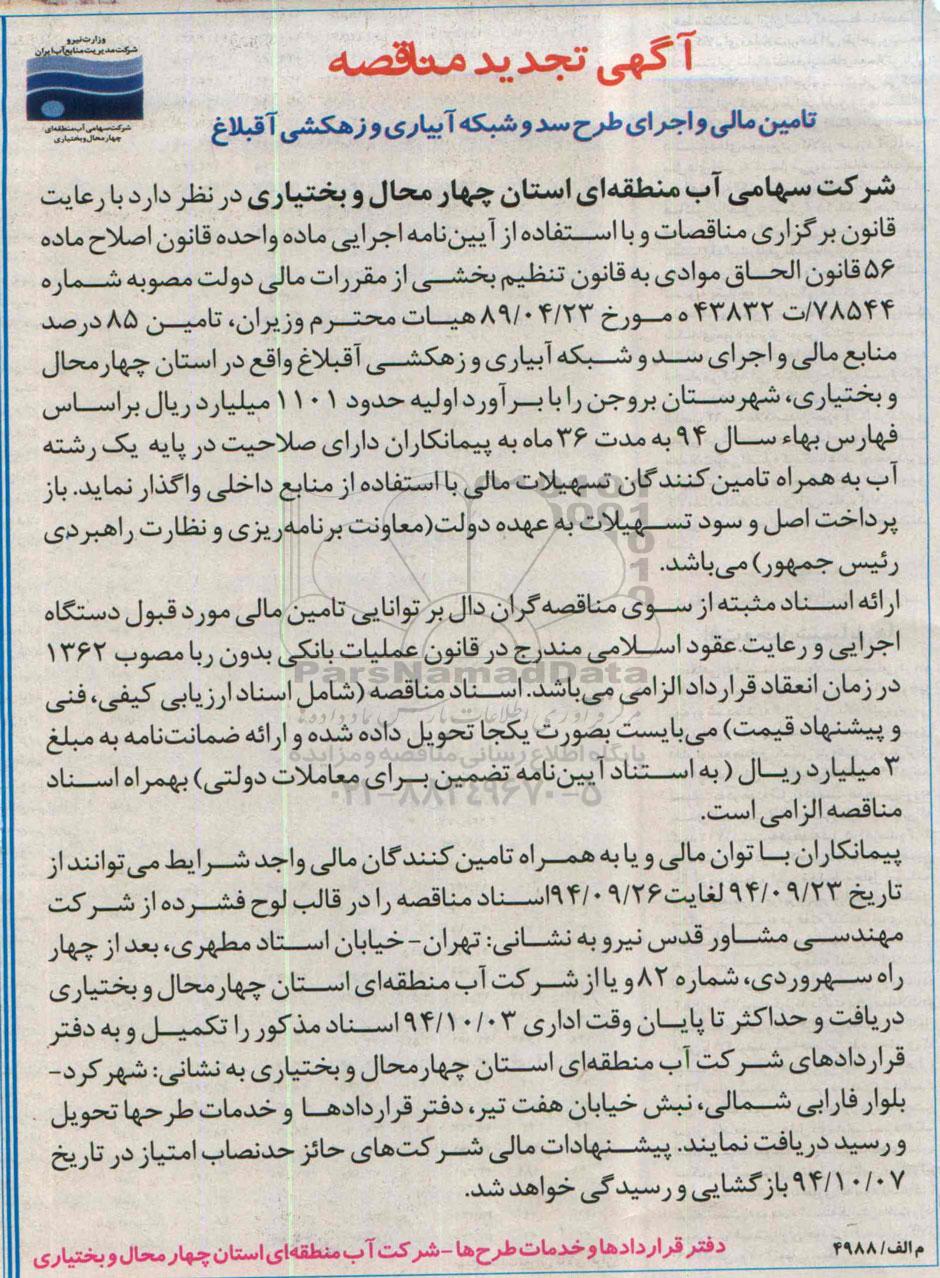 وزارت نیرو
شرکت مدیریت منابع آب ایران
شرکت سهامی آب منطقه‌ای
چهارمحال و بختیاری
آگهی تجدید مناقصه
تامین مالی و اجرای طرح سد و شبکه آبیاری و زهکشی آقبلاغ
شرکت سهامی آب منطقه‌ای استان چهارمحال و بختیاری در نظر دارد با رعایت
قانون برگزاری مناقصات و با استفاده از آیین‌نامه اجرایی ماده واحده قانون اصلاح ماده
۵۶ قانون الحاق موادی به قانون تنظیم بخشی از مقررات مالی دولت مصوبه شماره
۷۸۵۴۴/ت ۴۳۸۳۲ ه مورخ ۸۹/۰۴/۲۳ هیات محترم وزیران، تامین ۸۵ درصد
منابع مالی و اجرای سد و شبکه آبیاری و زهکشی آقبلاغ واقع در استان چهارمحال
و بختیاری، شهرستان بروجن را با برآورد اولیه حدود ۱۱۰۱ میلیارد ریال بر اساس
فهارس بهاء سال ۹۴ به مدت ۳۶ ماه به پیمانکاران دارای صلاحیت در پایه یک رشته
آب به همراه تامین‌کنندگان تسهیلات مالی با استفاده از منابع داخلی واگذار نماید. باز
پرداخت اصل و سود تسهیلات به عهده دولت(معاونت برنامه‌ریزی و نظارت راهبردی
رئیس جمهور) می‌باشد.
ارائه اسناد مثبته از سوی مناقصه‌گران دال بر توانایی تامین مالی مورد قبول دستگاه
اجرایی و رعایت عقود اسلامی مندرج در قانون عملیات بانکی بدون ربا مصوب ۱۳۶۲
در زمان انعقاد قرارداد الزامی می‌باشد. اسناد مناقصه (شامل اسناد ارزیابی کیفی، فنی
و پیشنهاد قیمت) می‌بایست بصورت یکجا تحویل داده شده و ارائه ضمانت‌نامه به مبلغ
۳ میلیارد ریال ( به استناد آیین‌نامه تضمین برای معاملات دولتی) بهمراه اسناد
مناقصه الزامی است.
پیمانکاران با توان مالی و یا به همراه تامین‌کنندگان مالی واجد شرایط می‌توانند از
تاریخ ۹۴/۰۹/۲۳ لغایت ۹۴/۰۹/۲۶ اسناد مناقصه را در قالب لوح فشرده از شرکت
مهندسی مشاور قدس نیرو به نشانی: تهران - خیابان استاد مطهری، بعد از چهار
راه سهروردی، شماره ۸۲ و یا از شرکت آب منطقه‌ای استان چهارمحال و بختیاری
دریافت و حداکثر تا پایان وقت اداری ۹۴/۱۰/۰۳ اسناد مذکور را تکمیل و به دفتر
قراردادهای شرکت آب منطقه‌ای استان چهارمحال و بختیاری به نشانی: شهرکرد-
بلوار فارابی شمالی، نبش خیابان هفت تیر، دفتر قراردادها و خدمات طرحها تحویل
و رسید دریافت نمایند. پیشنهادات مالی شرکت‌های حائز حدنصاب امتیاز در تاریخ
۹۴/۱۰/۰۷ بازگشایی و رسیدگی خواهد شد.
م الف/ ۴۹۸۸
دفتر قراردادها و خدمات طرح‌ها - شرکت آب منطقه‌ای استان چهارمحال و بختیاری
ParsNamadData
پایگاه اطلاع رسانی مناقصه و مزایده
۰۲۱-۸۸۳۴۹۶۷۰-۵